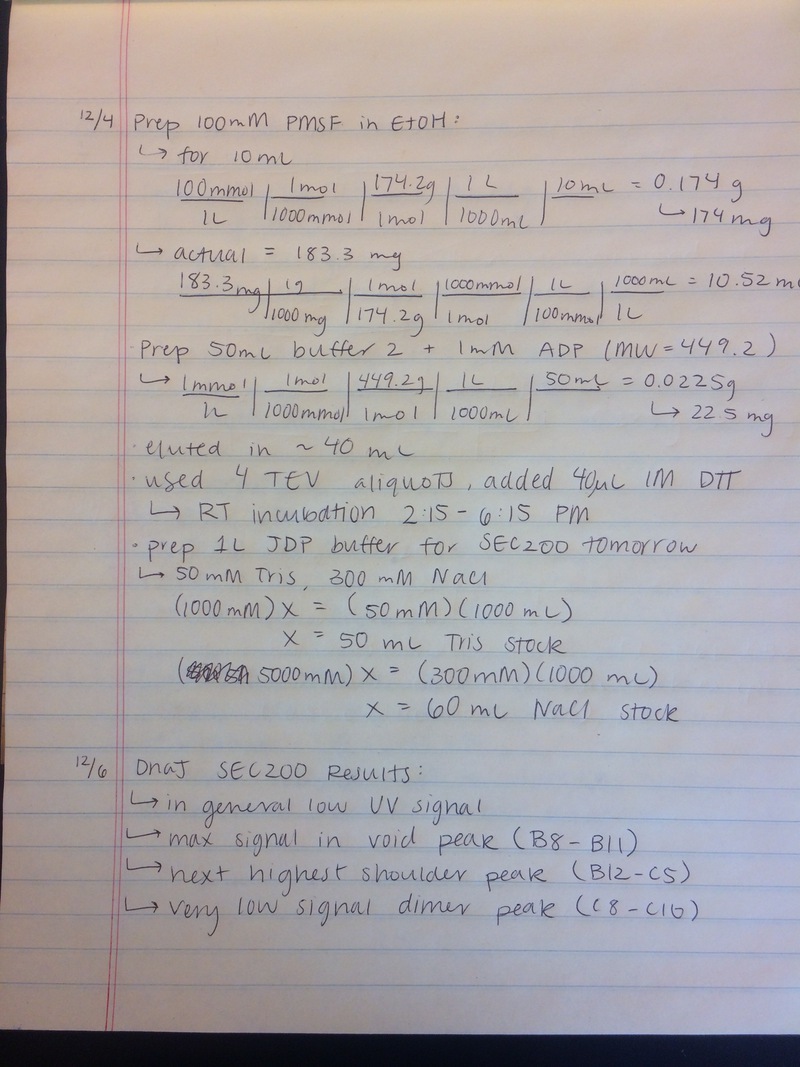 12/4 Prep 100mM PMSF in EtOH:
↳ for 10mL
100mmol/1L | 1mol/1000mmol | 174.2g/1mol | 1L/1000mL | 10mL = 0.174 g
↳ 174 mg
↳ actual = 183.3 mg
183.3mg | 1g/1000mg | 1mol/174.2g | 1000mmol/1mol | 1L/100mmol | 1000mL/1L = 10.52 mL
· Prep 50mL buffer 2 + 1mM ADP (MW=449.2)
↳ 1mmol/1L | 1mol/1000mmol | 449.2g/1mol | 1L/1000mL | 50mL = 0.0225g
↳ 22.5 mg
· eluted in ~ 40 mL
· used 4 TEV aliquots, added 40µL 1M DTT
↳ RT incubation 2:15 - 6:15 PM
· prep 1L JDP buffer for SEC200 tomorrow
↳ 50 mM Tris, 300 mM NaCl
(1000 mM) x = (50 mM)(1000 mL)
x = 50 mL Tris stock
(5000mM) x = (300mM)(1000 mL)
x = 60 mL NaCl stock
12/6 DnaJ SEC200 Results:
↳ in general low UV signal
↳ max signal in void peak (B8-B11)
↳ next highest shoulder peak (B12-C5)
↳ very low signal dimer peak (C8-C10)